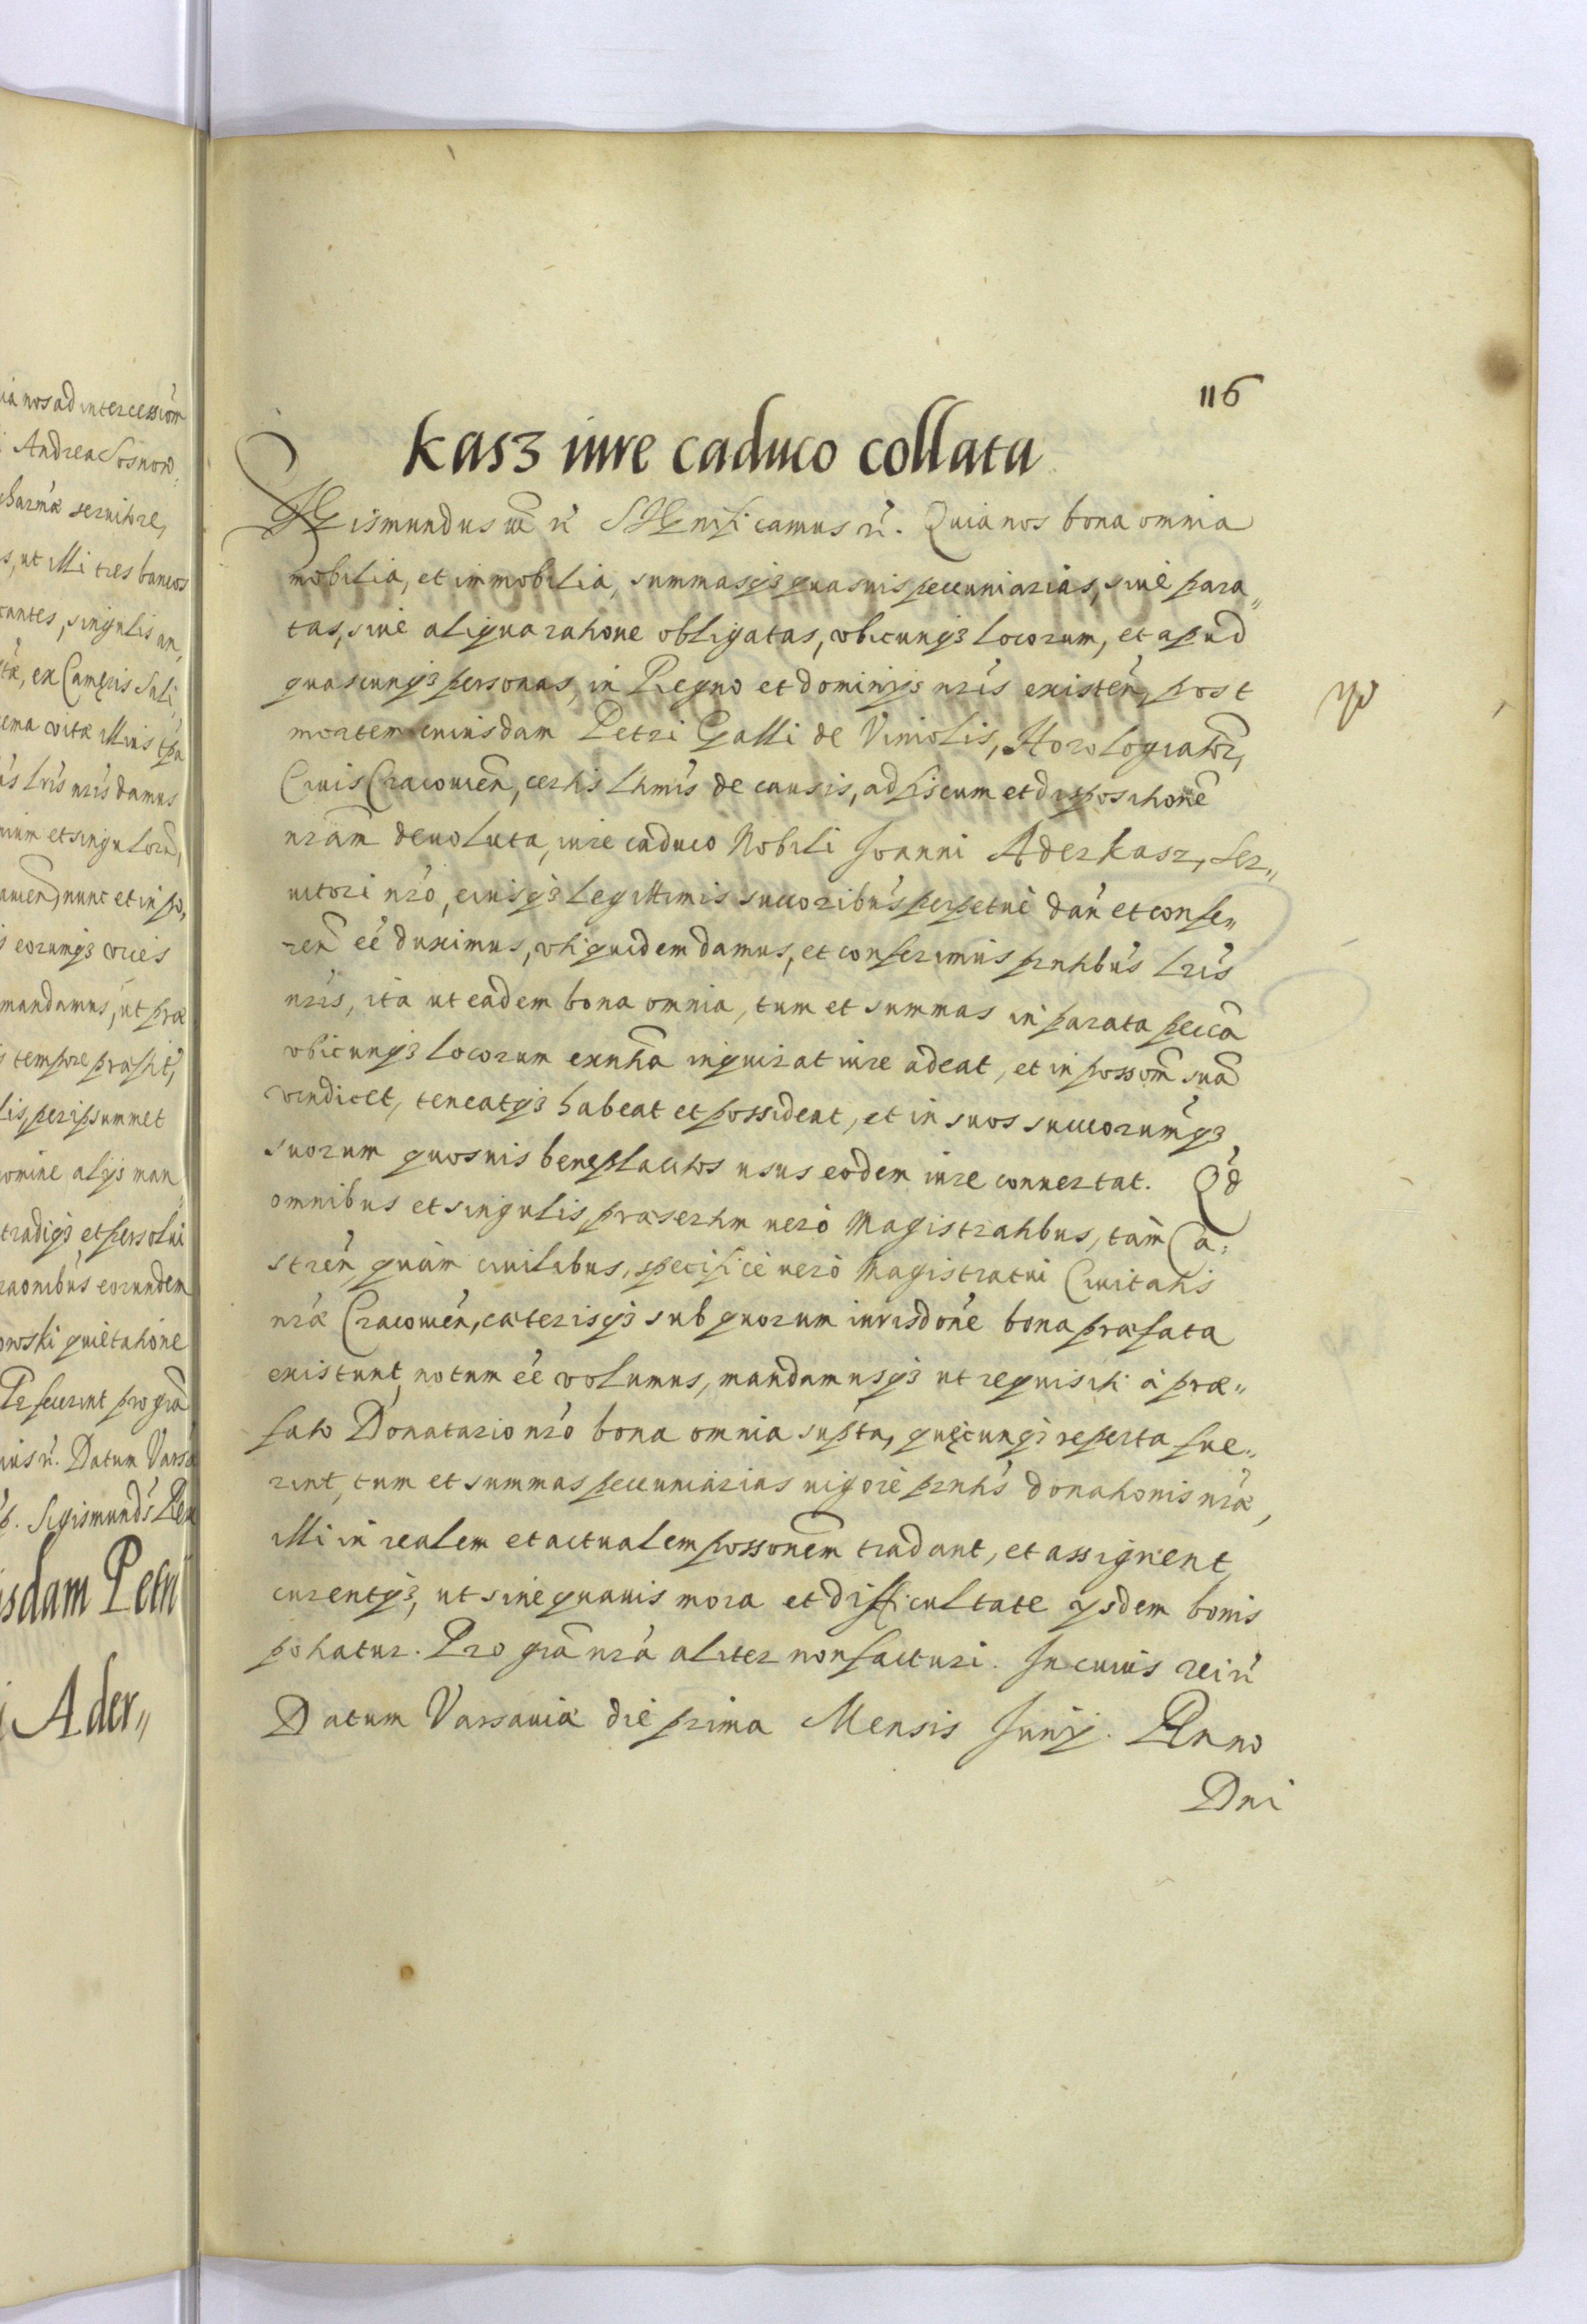 ia nos ad intercessiom̃
Andrea Sosnow
pharmæ seruitore,
s, ut illi tres bancos
rantes, singulis an„
ex Campis Sali
ema vitæ illius tpa
lris nris damus
nium et singulorũ,
nunc et in po„
s eorumq3 vices
mandamus, ut præ
s tempore præfit,
lis, per ipsummet
nomine alijs man„
tradiq3 et persolui
eorundem
owski quietatione
fecerint pro gra
uius rĩ. Datum Varsa
p. Sigismunds Rex
isdam Petri
i Ader„
116
kas3 iure caduco collata
Sigismundus III rĩ Significamus rĩ. Quia nos bona omnia
mobilia, et immobilia, summasq3 quasuis pecuniarias, siue para„
tas, siue aliqua ratione obligatas, vbicunq3 locorum, et apud
quascunq3 personas, in Regno et dominijs nris existeñ, post
mortem cuiusdam Petri Galli de Vimolis, Horologiator̃,
Ciuis Cracouieñ, certis ltmis de causis, ad fiscum et dispositionẽ
nram deuoluta, iure caduco Nobili Joanni Aderkasz, Ser„
uitori nro, eiusq3 legittimis succoribus perpetuè dañ et confe„
reñ eẽ duximus, vti quidem damus, et conferimus pntibus lris
nris, ita ut eadem bona omnia, tum et summas in parata pecca
vbicunq3 locorum exntia inquirat iure adeat, et in possom̃ suã
vindicet, teneatq3 habeat et possideat, et in suos succorumq3
suorum quosuis beneplacitos usus eodem iure conuertat. Qd
omnibus et singulis, præsertim uerò Magistratibus, tam Ca:
streñ, quàm ciuilibus, specificè uerò Magistratui Ciuitatis
nræ Cracouieñ, cæterisq3 sub quorum iurisdone bona præfata
existunt, notum eẽ volumus, mandamusq3 ut requisiti à præ„
fato Donatario nro bona omnia supta, quęcunq3 reperta fue„
rint, tum et summas pecuniarias uigore pntis donationis nræ,
illi in realem et actualem possonem tradant, et assignent,
curentq3, ut sine quauis mora et difficultate ijsdem bonis
potiatur. Pro gra nra aliter non facturi. In cuius rei rĩ
Datum Varsauiæ die prima Mensis Junij. Anno
Dni